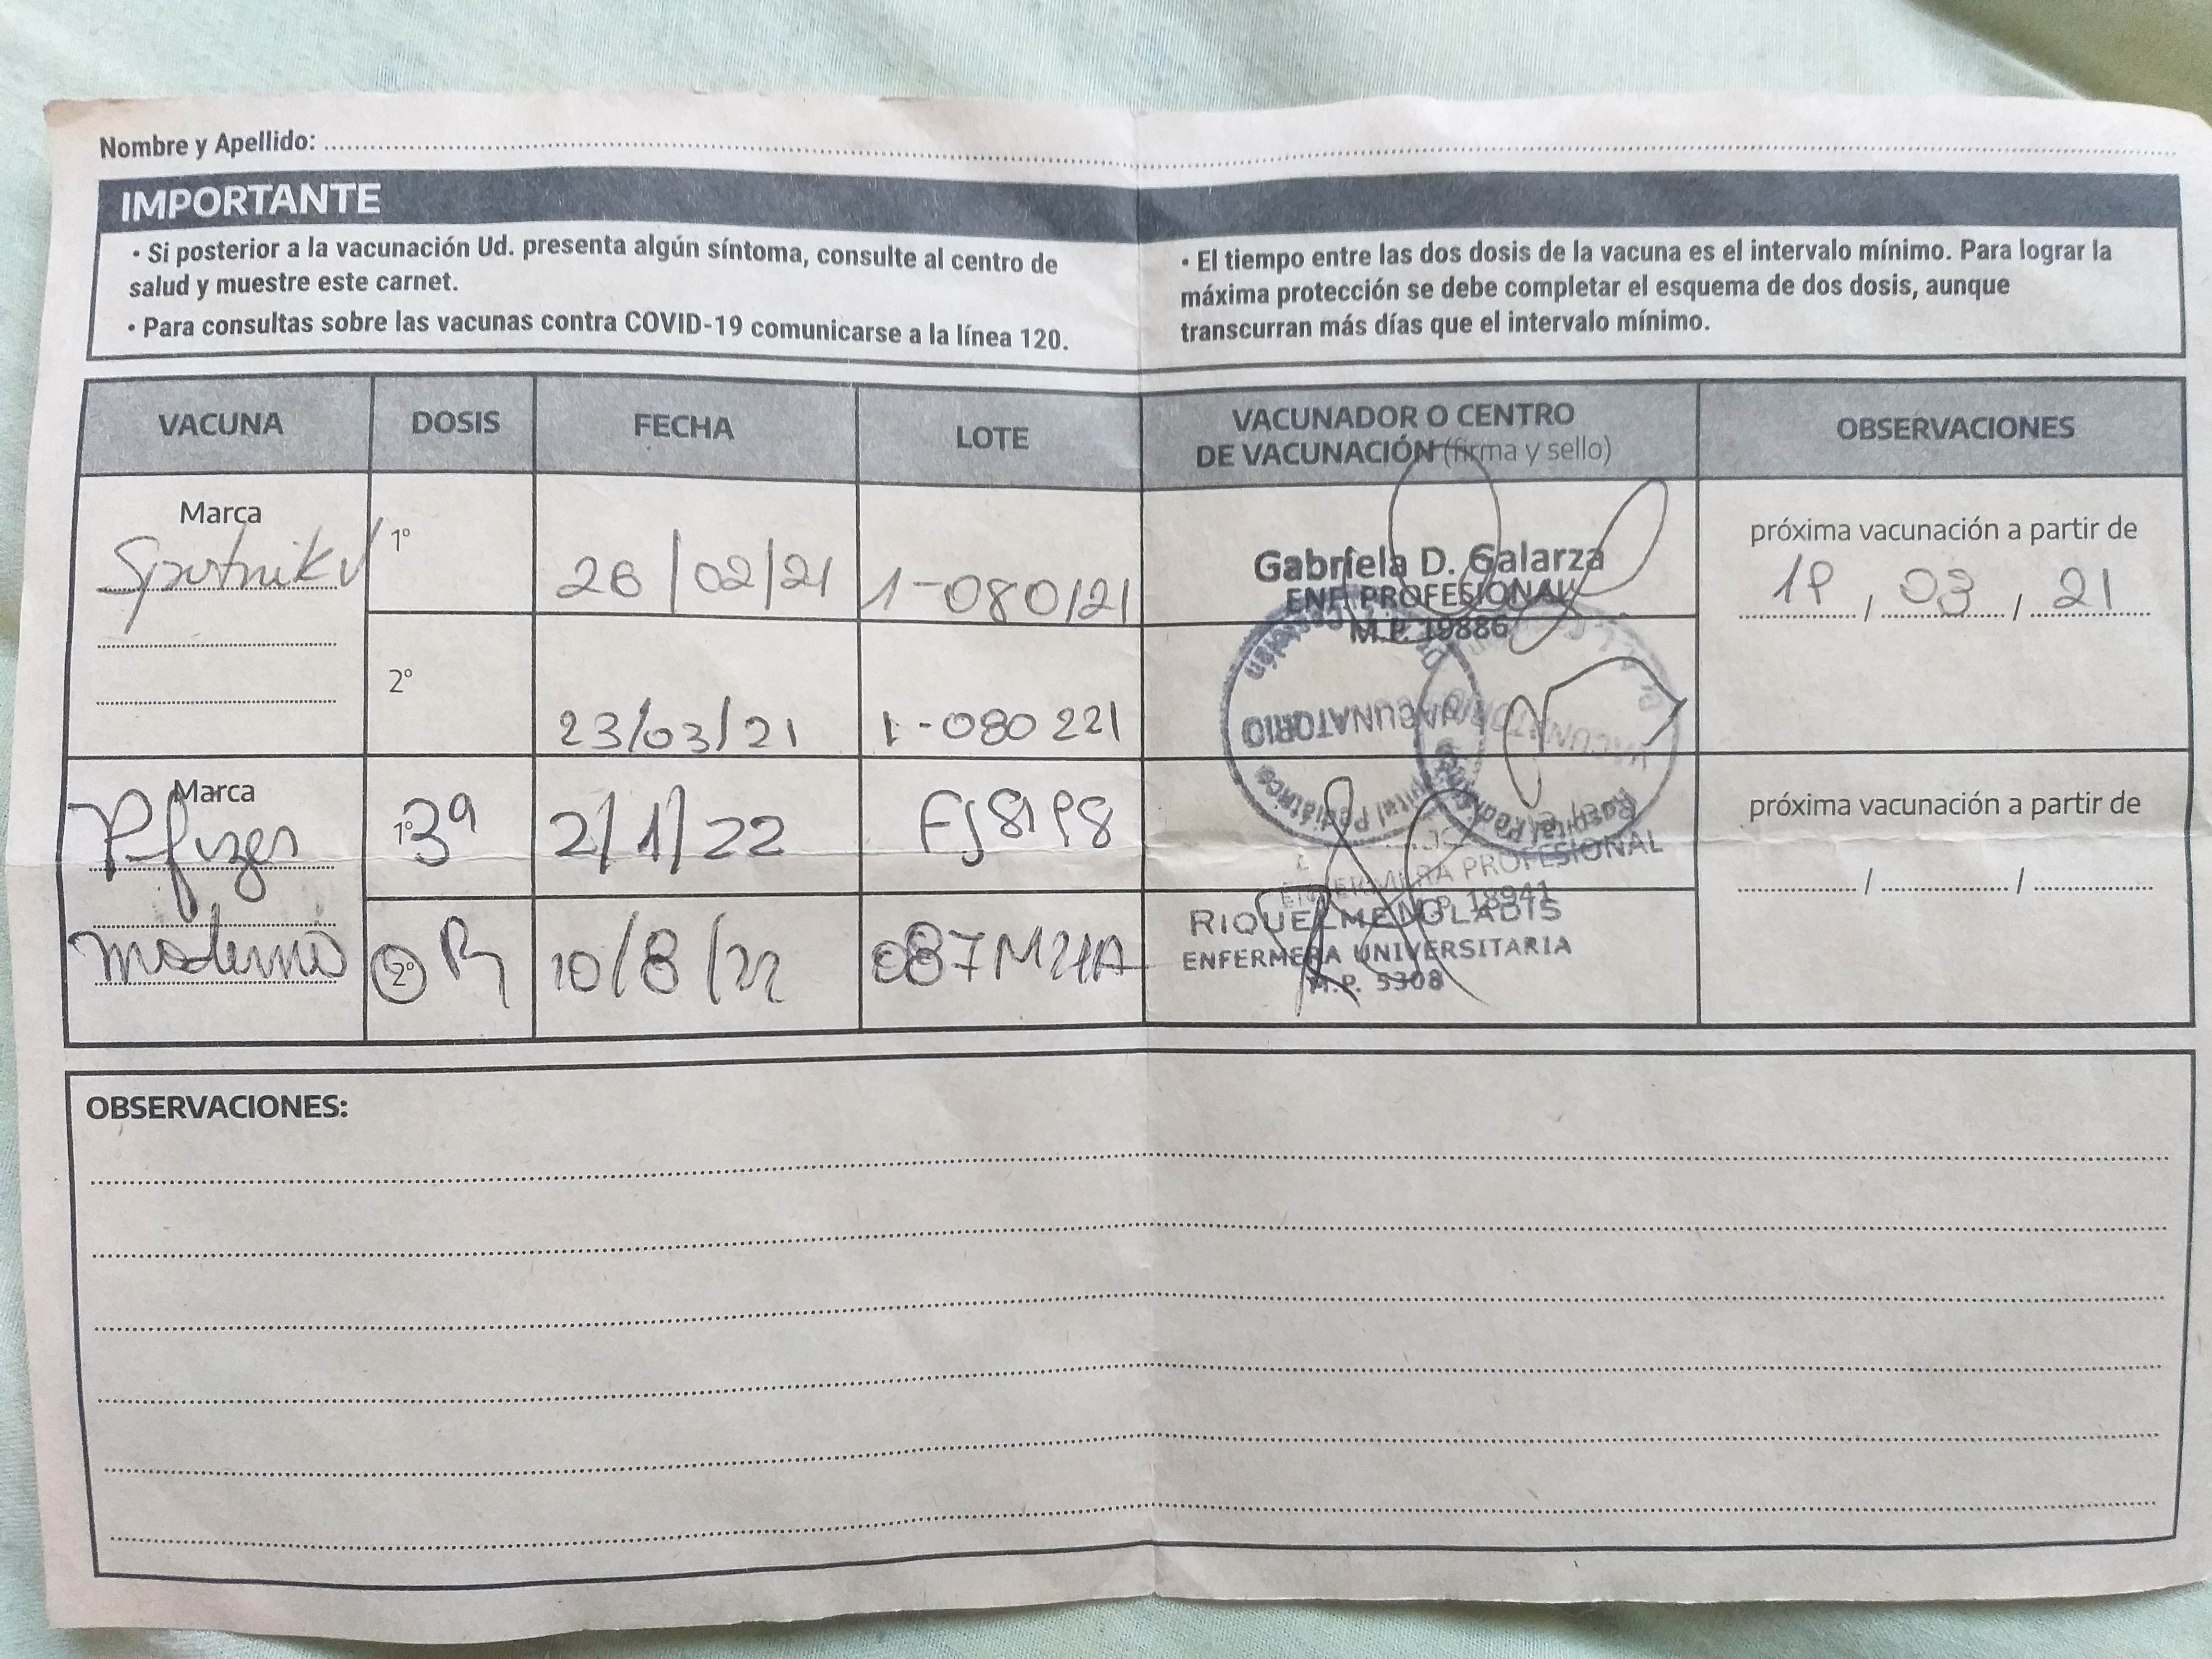 Nombre y Apellido:
IMPORTANTE
• Si posterior a la vacunación Ud. presenta algún síntoma, consulte al centro de
salud y muestre este carnet.
• Para consultas sobre las vacunas contra COVID-19 comunicarse a la línea 120.
• El tiempo entre las dos dosis de la vacuna es el intervalo mínimo. Para lograr la
máxima protección se debe completar el esquema de dos dosis, aunque
transcurran más días que el intervalo mínimo.
VACUNA DOSIS FECHA LOTE VACUNADOR O CENTRO DE VACUNACIÓN (firma y sello) OBSERVACIONES
Marca
Sputnik V
1º 26/02/21
Gabriela D. Galarza
ENF. PROFESIONAL
M.P. 19886
próxima vacunación a partir de
03 / 21
2º 23/03/21 1-080221
VACUNATORIO
Hospital Pediátrico
Marca
Pfizer
1º 3ª 2/1/22
ENFERMERA PROFESIONAL
M.P. 18941
próxima vacunación a partir de
/ /
Moderna
2º R 10/8/22 087M21A
RIQUELME GLADIS
ENFERMERA UNIVERSITARIA
M.P. 5308
OBSERVACIONES: